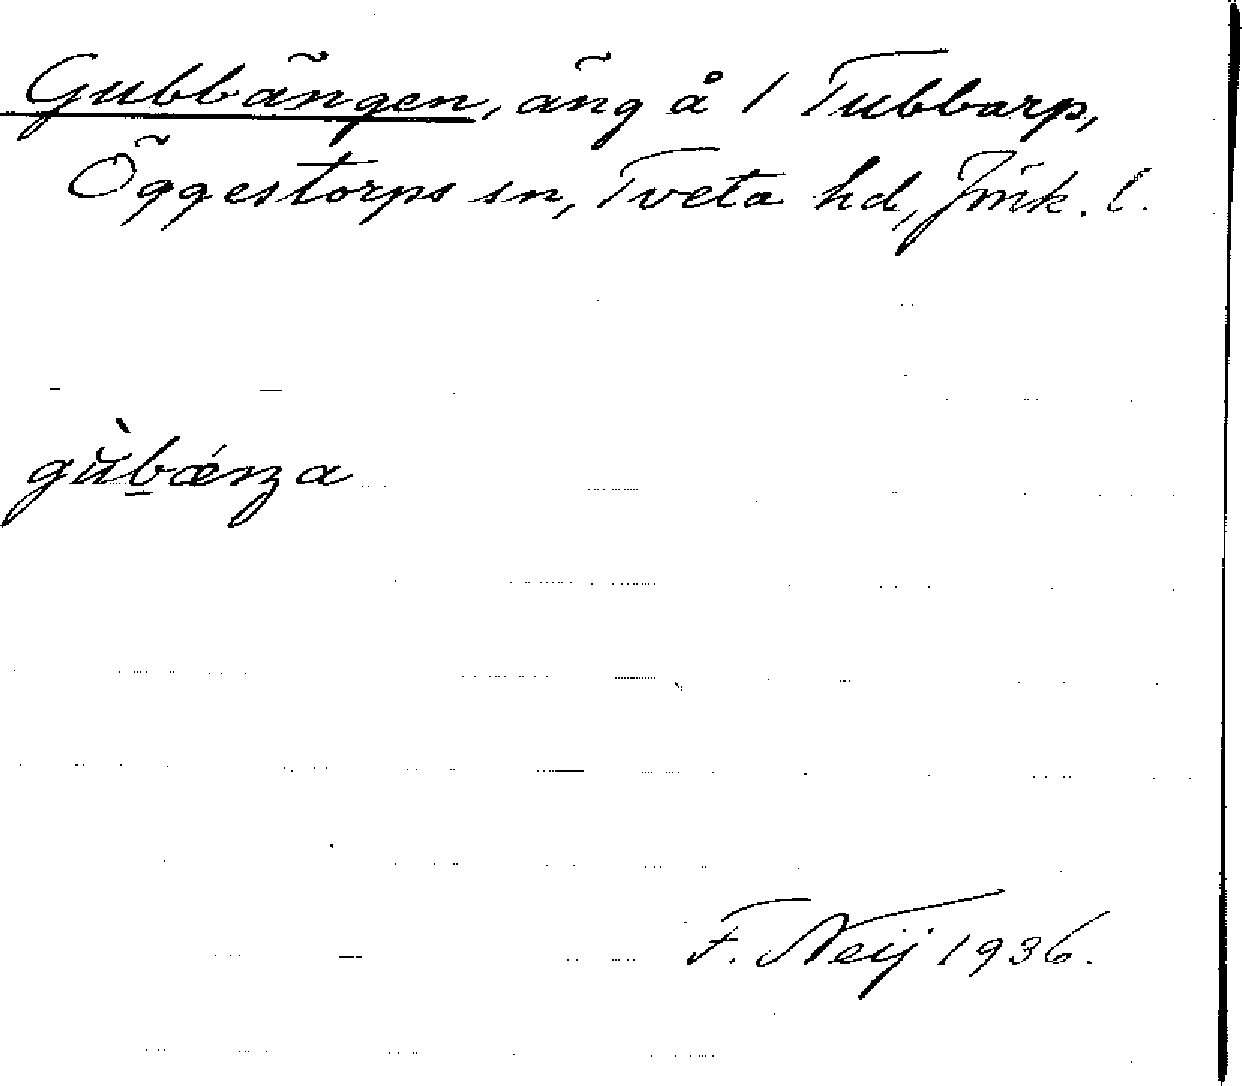 Gubbängen, äng å 1 Tubbarp,
Öggestorps sn, Tveta hd, Jönk. l.
gùbǽnga
F. Neij 1936.